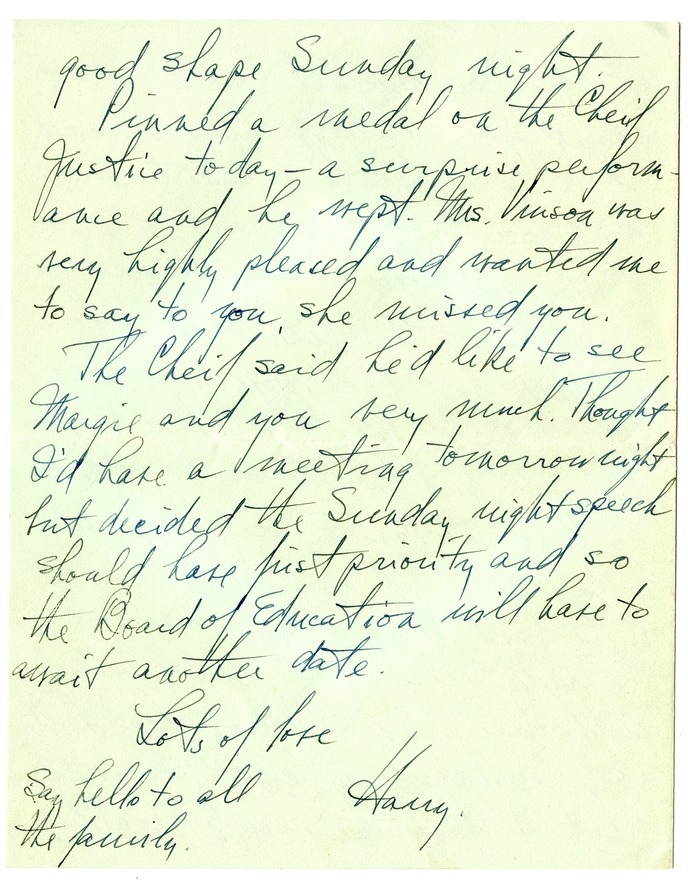 good shape Sunday night.
Pinned a medal on the Cheif
Justice today—a surprise perform-
ance and he wept. Mrs. Vinson was
very highly pleased and wanted me
to say to you she missed you.
The Cheif said he'd like to see
Margie and you very much. Thought
I'd have a meeting tomorrow night
but decided the Sunday night speech
should have first priority and so
the Board of Education will have to
await another date.
Lots of love
Say hello to all Harry.
the family.